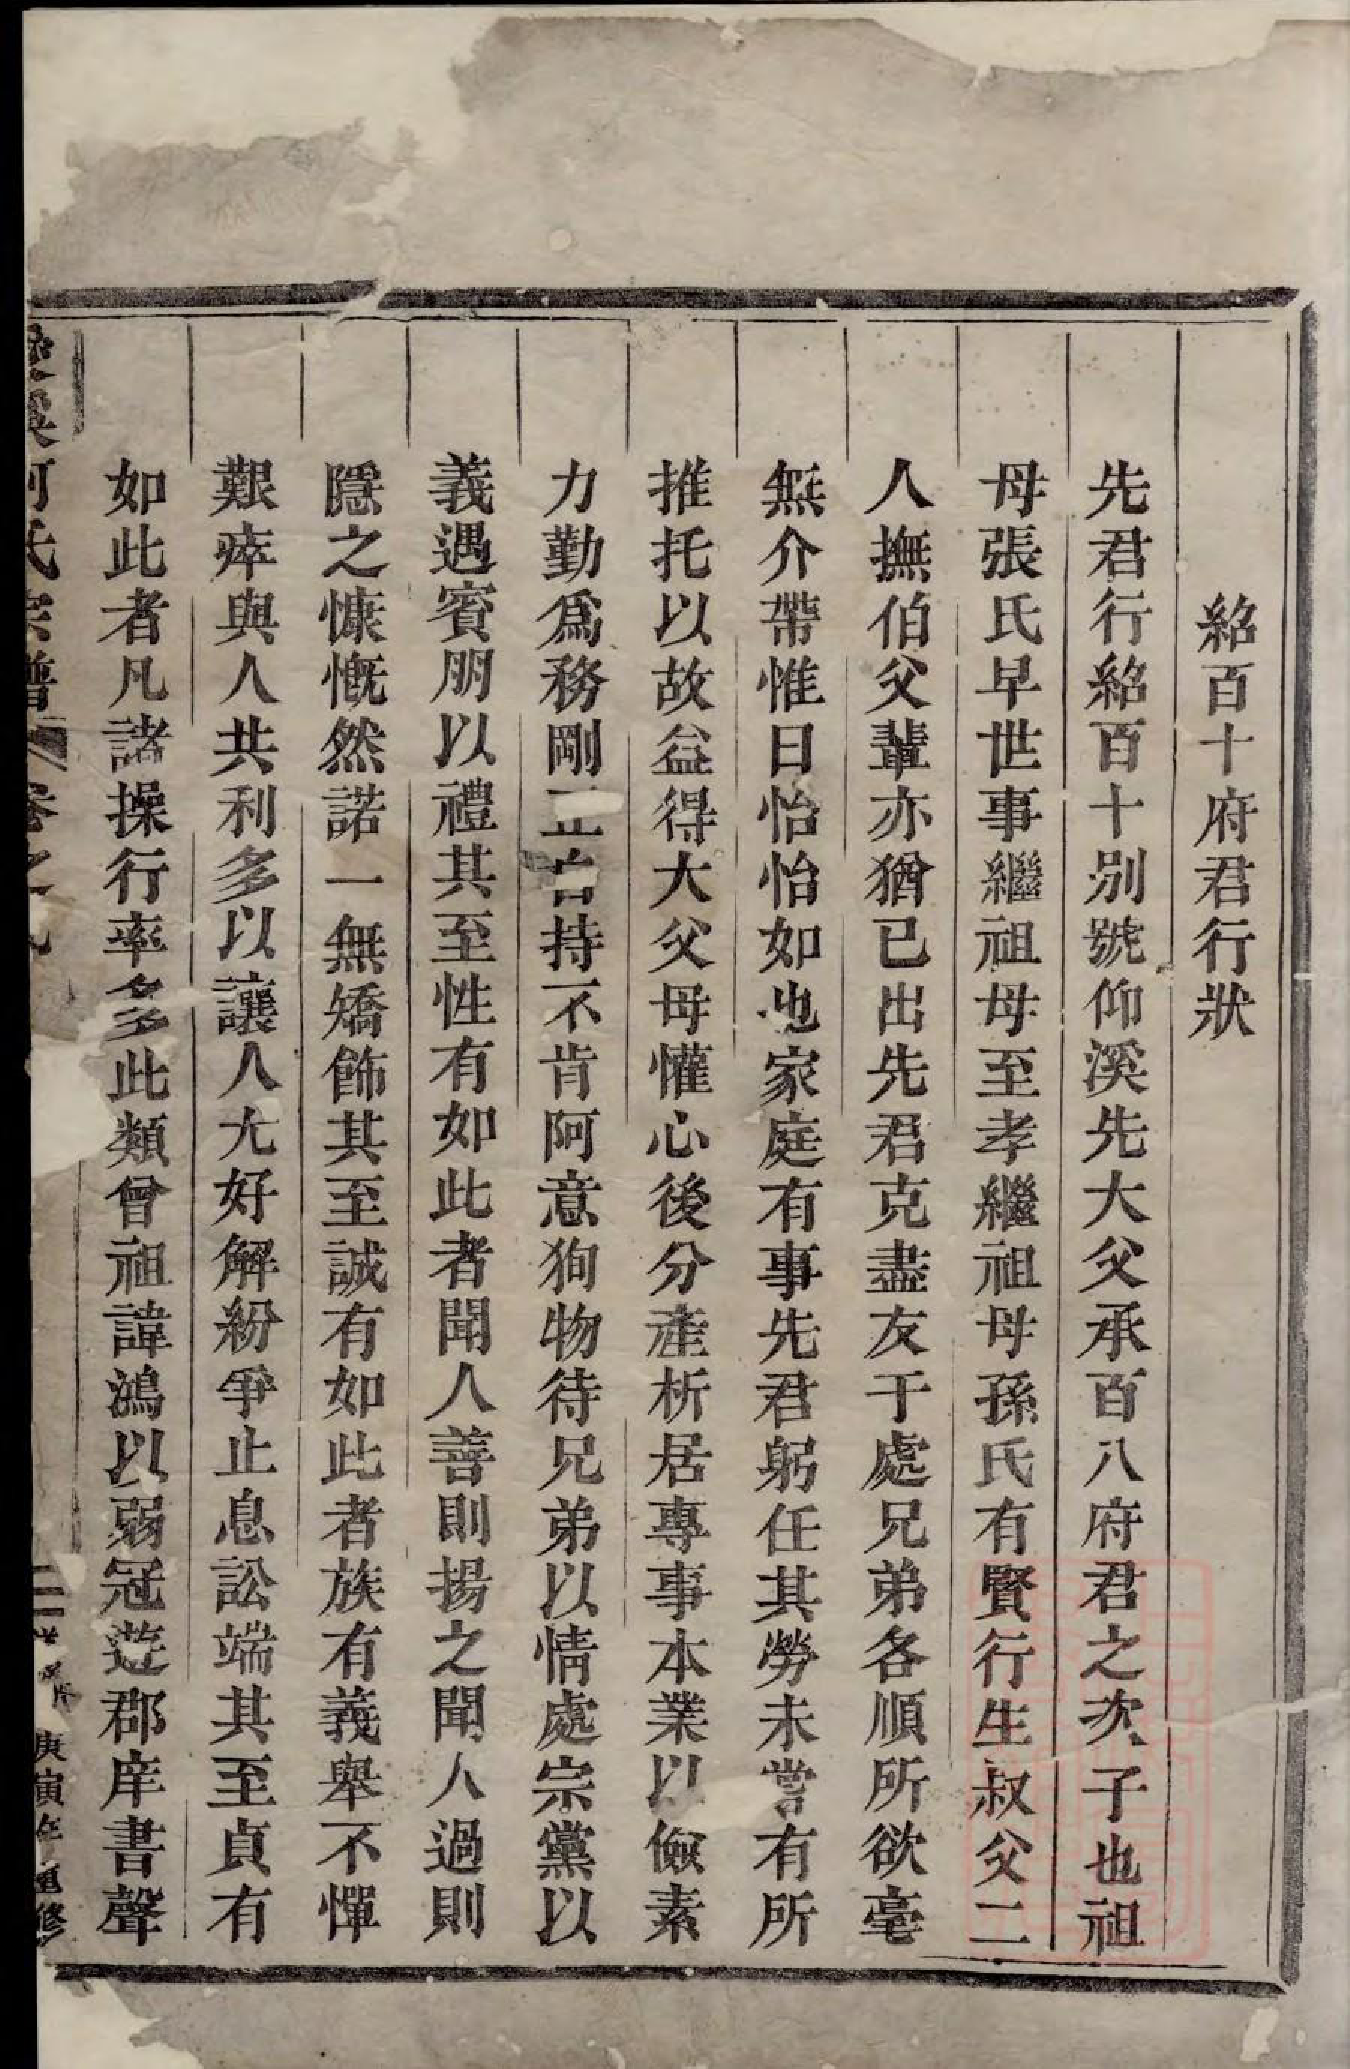 紹百十府君行狀
先君行紹百十別號仰溪先大父承百八府君之次子也祖
母張氏早世事繼祖母至孝繼祖母孫氏有賢行生叔父二
人撫伯父輩亦猶已出先君克盡友于處兄弟各順所欲毫
無介帶惟日怡怡如也家庭有事先君躬任其勞未嘗有所
推托以故益得大父母懽心後分產析居專事本業以儉素
力勤爲務剛正自持不肯阿意狥物待兄弟以情處宗黨以
義遇賓朋以禮其至性有如此者聞人善則揚之聞人過則
隱之慷慨然諾一無矯飾其至誠有如此者族有義舉不憚
艱瘁與人共利多以讓人尤好解紛爭止息訟端其至貞有
如此者凡諸操行率多此類曾祖諱鴻以弱冠遊郡庠書聲
溪何氏宗譜 卷之
庚寅年重修